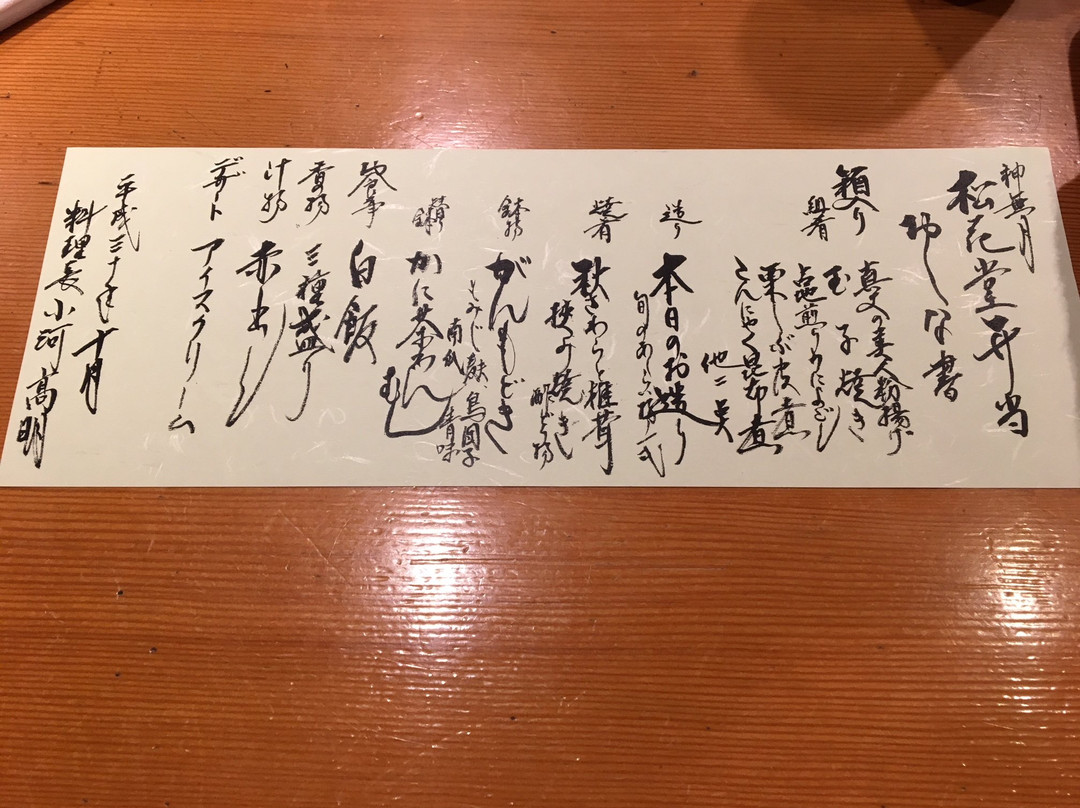 神無月
松花堂弁当
おしな書
箱入り
組肴
真丈の美人粉揚げ
玉子焼き
栗しぶ皮煮
こんにゃく昆布煮
他二美
造り
本日のお造り
旬のあしらい物一式
焼肴
秋さわら椎茸
挟み焼き
酢どり物
鉢物
がんもどき
もみじ麸 鳥団子
南瓜 青味
かに茶わんむし
食事
白飯
香物
三種盛り
汁物
赤出し
デザート
アイスクリーム
平成三十年十月
料理長 小河 高明